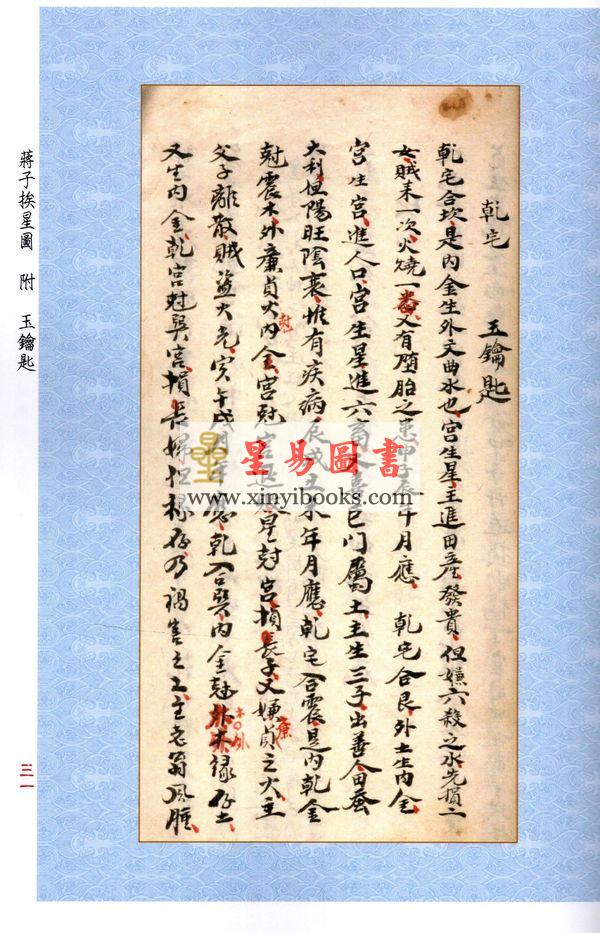 玉鑰匙
乾宅
乾宅合坎、是內金生外文曲水也、宮生星、主進田產發貴、但嫌六殺之水、先損二
女、賊來一次、火燒一番、又有墮胎之患、申子辰年月應、 乾宅合艮、外土生內金、
宮生宮、進人口、宮生星、進六畜、巨門屬土、主生三子、出善人、田蚕
大利、但陽旺陰衰、堆有疾病、辰戌丑未年月應、乾宅合震、是內乾金
尅震木、外廉貞火內尅金、宮尅宮退、星尅宮、損長子、又嫌廉貞之火、主
父子離散、賊盜火光、寅午戌年月應、乾合巽、內金尅木〇外祿存土、
又生內金、乾宮尅巽宮、損長婦、但祿存乃禍害之土、主老翁風腫、
星易圖書
www.xinyibooks.com
蔣子挨星圖 附 玉鑰匙
三一